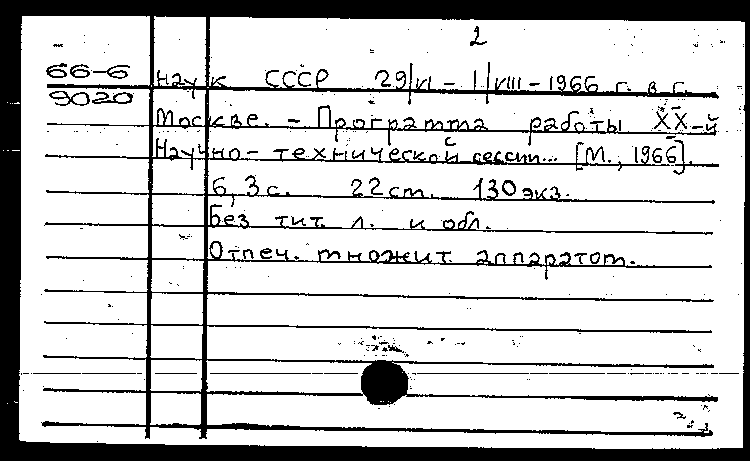 2
66-6 наук СССР 29/VI - 1/VIII - 1966 г. в г.
9020
Москве. - Программа работы XX-й
Научно-технической сессии... [М., 1966].
6, 3 с. 22 cm. 130 экз.
Без тит. л. и обл.
Отпеч. множит. аппаратом.